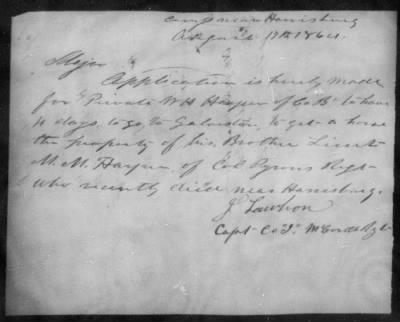 Camp near Harrisburg
April 17th 1864
Major
Application is hereby made
for Private W H Harper of Co B to have
4 days, to go to Galveston, to get a horse
the property of his Brother Lieut
M. M. Harper of Col Pyrons Regt
who recently died near Harrisburg.
J Lawhon
Capt Co